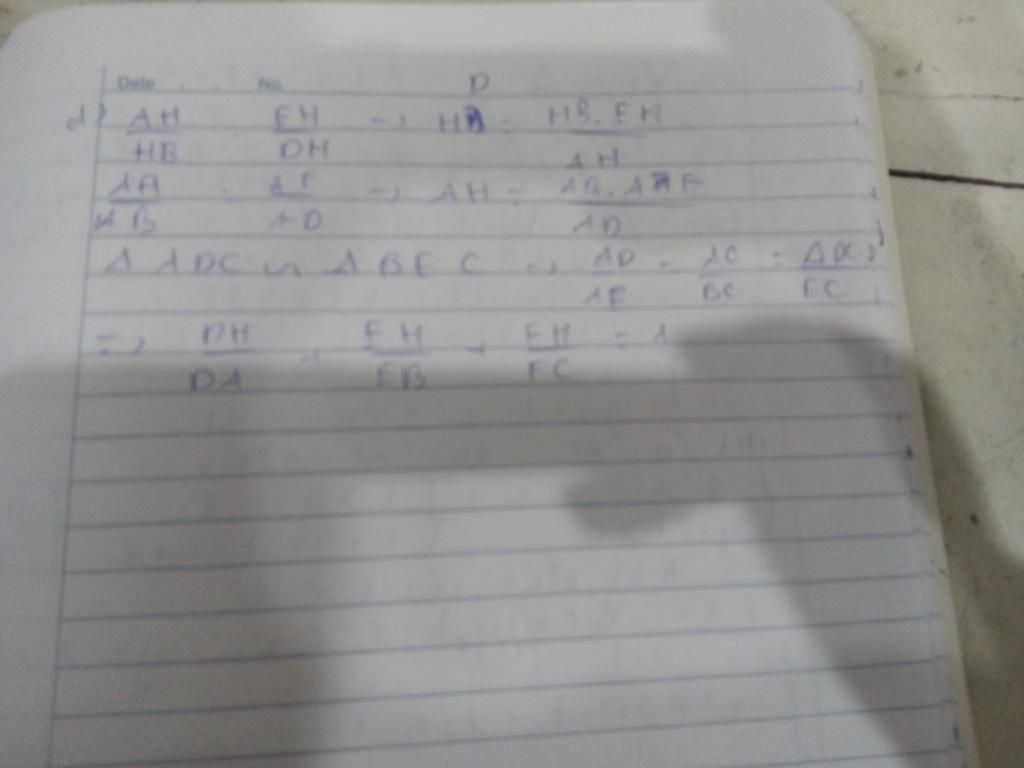 Date No.
d) AH/HB = EH/DH → HD = HB.EH/AH
AH/AB = AE/AD → AH = AB.AE/AD
Δ ADC ∽ Δ BEC → AD/AE = AC/BC = DC/EC
=> DH/DA + EH/EB + FH/FC = 1